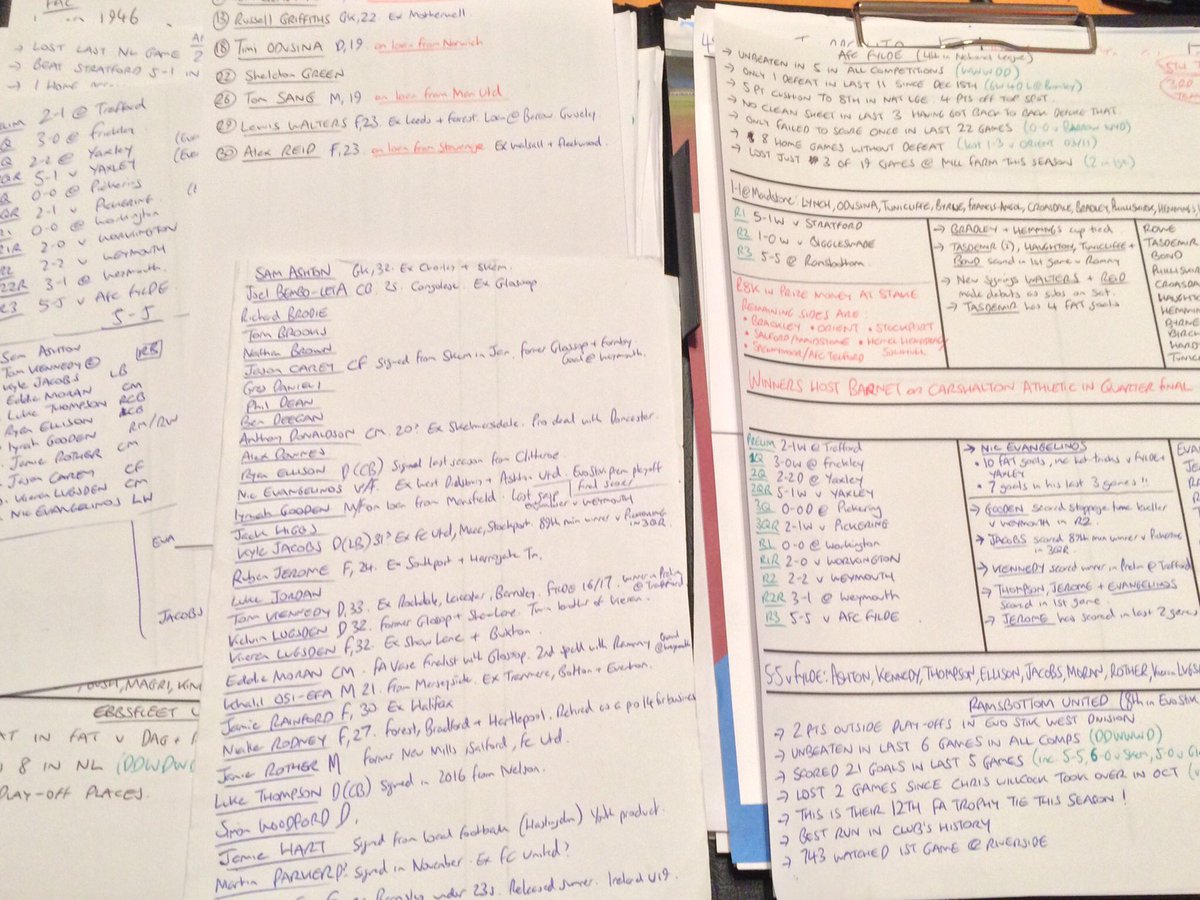 in 1946
→ LOST LAST NL GAME
→ BEAT STRATFORD 5-1 IN
→ 1 HOME
2-1 @ Trafford
3-0 @ Frickley
2-2 @ Yaxley
5-1 v YAXLEY
0-0 @ Pickering
2-1 v PICKERING
0-0 @ Workington
2-0 v WORKINGTON
2-2 v WEYMOUTH
3-1 @ Weymouth
R3 5-5 v AFC FYLDE
5-5
SAM ASHTON
Tom KENNEDY RB
Kyle JACOBS LB
Eddie MORAN CM
Luke THOMPSON RCB
Ryan ELLISON LCB
Iyrah GOODEN RM/RW
Jamie ROTHER CM
Jason CAREY CF
Kieran LUGSDEN CM
NIC EVANGELINOS LW
EVA
JACOBS
EBBSFLEET U
AT IN FAT v DAG + R
8 IN NL (DDWDWD
PLAY-OFF PLACES.
(13) Russell GRIFFITHS GK, 22 Ex Motherwell
(18) Timi ODUSINA D, 19 on loan from Norwich
(22) Sheldon GREEN
(26) Tom SANG M, 19 on loan from Man Utd
(29) Lewis WALTERS F, 23. Ex Leeds + Forest. Loan @ Barrow, Guiseley
(30) Alex REID F, 23. on loan from Stevenage Ex Walsall + Fleetwood.
SAM ASHTON GK, 32. Ex Chorley + Skem.
Joel BEMBO-LETA CB 25. Congolese. Ex Glossop
Richard BRODIE
Tom BROOKS
Nathan BROWN
Jason CAREY CF signed from Skem in Jan, former Glossop + Formby Goal @ Weymouth.
Greg DANIELI
Phil DEAN
Ben DEEGAN
Anthony DONALDSON CM. 20? Ex Skelmersdale. Pro deal with Doncaster.
Alex DOWNES
Ryan ELLISON D (CB) Signed last season from Clitheroe
Nic EVANGELINOS W/F. Ex West Didsbury + Ashton Utd. Evostik prem playoff final scorer
Iyrah GOODEN M/F on loan from Mansfield. Last gasp equaliser v WEYMOUTH
Jack HIGGS
Kyle JACOBS D (LB) 31? Ex FC Utd, Macc, Stockport. 89th min winner v PICKERING IN 3QR.
Ruben JEROME F, 24. Ex Southport + Harrogate Tn.
Luke JORDAN
Tom KENNEDY D, 33. Ex Rochdale, Leicester, Barnsley. FYLDE 16/17. Winner in Prelim @ Trafford
Kelvin LUGSDEN D 32. Former Glossop + Shaw Lane. Twin brother of Kieran.
Kieran LUGSDEN F, 32. Ex Shaw Lane + Buxton.
Eddie MORAN CM. FA Vase Finalist with Glossop. 2nd spell with Rammy Goal @ Weymouth
Khalil OSI-EFA M 21. From Merseyside. Ex Tranmere, Bolton + Everton.
Jamie RAINFORD F, 30 Ex Halifax
Nialle RODNEY F, 27. Forest, Bradford + Hartlepool. Retired as a pro 14 for business
Jamie ROTHER M Former New Mills, Salford, FC Utd.
Luke THOMPSON D (CB) Signed in 2016 from Nelson.
Simon WOODFORD D.
Jamie HART Signed from local football (Haslingden) Youth product.
Martin PARKER D? Signed in November. Ex FC United?
Barnsley under 23s. Released summer. Ireland U19.
AFC FYLDE (4th in National League)
→ UNBEATEN IN 5 IN ALL COMPETITIONS (WWWDD)
→ ONLY 1 DEFEAT IN LAST 11 SINCE DEC 15TH (6W 4D L@Bromley)
→ 5 PT CUSHION TO 8TH IN NAT LGE. 4 PTS OFF TOP SPOT.
→ NO CLEAN SHEET IN LAST 3 HAVING GOT BACK TO BACK BEFORE THAT.
→ ONLY FAILED TO SCORE ONCE IN LAST 22 GAMES (0-0 v BARROW NYD)
→ 8 HOME GAMES WITHOUT DEFEAT (last 1-3 v ORIENT 03/11)
→ LOST JUST 3 OF 19 GAMES @ MILL FARM THIS SEASON (2 in lge)
1-1 @ Maidstone: LYNCH, ODUSINA, TUNICLIFFE, BYRNE, FRANCIS-ANGOL, CROASDALE, BRADLEY, PHILLISKIRK, HEMMINGS, H
R1 5-1 W v STRATFORD
R2 1-0 W v BIGGLESWADE
R3 5-5 @ Ramsbottom
£8K IN PRIZE MONEY AT STAKE
REMAINING SIDES ARE:
• BRACKLEY • ORIENT • STOCKPORT
• SALFORD/MAIDSTONE • HEMEL HEMPSTEAD/
• SPENNYMOOR/AFC TELFORD SOLIHULL
→ BRADLEY + HEMMINGS cup tied
→ TASDEMIR (2), HAUGHTON, TUNICLIFFE + BOND scored in 1st game v Rammy
→ New signings WALTERS + REID made debuts as subs on Sat.
→ TASDEMIR has 4 FAT goals
ROWE
TASDEMIR
BOND
PHILLISKIRK
CROASDALE
HAUGHTON
HEMMINGS
BYRNE
BIRCH
HARDY
TUNICLIFFE
WINNERS HOST BARNET or CARSHALTON ATHLETIC IN QUARTER FINAL
PRELIM 2-1 W @ Trafford
1Q 3-0 W @ Frickley
2Q 2-2 D @ Yaxley
2QR 5-1 W v YAXLEY
3Q 0-0 D @ Pickering
3QR 2-1 W v PICKERING
R1 0-0 @ Workington
R1R 2-0 v WORKINGTON
R2 2-2 v WEYMOUTH
R2R 3-1 @ Weymouth
R3 5-5 v AFC FYLDE
→ NIC EVANGELINOS
• 10 FAT goals, inc hat tricks v FYLDE + YAXLEY
• 7 goals in his last 3 games!!
→ GOODEN scored stoppage time leveller v WEYMOUTH in R2.
→ JACOBS scored 89th min winner v Pickering in 3QR.
→ KENNEDY scored winner in Prelim @ Trafford
→ THOMPSON, JEROME + EVANGELINOS scored in 1st game.
→ JEROME has scored in last 2 games
5-5 v FYLDE: ASHTON, KENNEDY, THOMPSON, ELLISON, JACOBS, MORAN, ROTHER, Kieran LUGS
RAMSBOTTOM UNITED (8th in Evostik
→ 2 PTS OUTSIDE PLAY-OFFS IN EVO STIK WEST DIVISION
→ UNBEATEN IN LAST 6 GAMES IN ALL COMPS (DDWWWD)
→ SCORED 21 GOALS IN LAST 5 GAMES (inc. 5-5, 6-0 v Skem, 5-0 v
→ LOST 2 GAMES SINCE CHRIS WILLCOCK TOOK OVER IN OCT
→ THIS IS THEIR 12TH FA TROPHY TIE THIS SEASON!
→ BEST RUN IN CLUB'S HISTORY
→ 743 WATCHED 1ST GAME @ RIVERSIDE